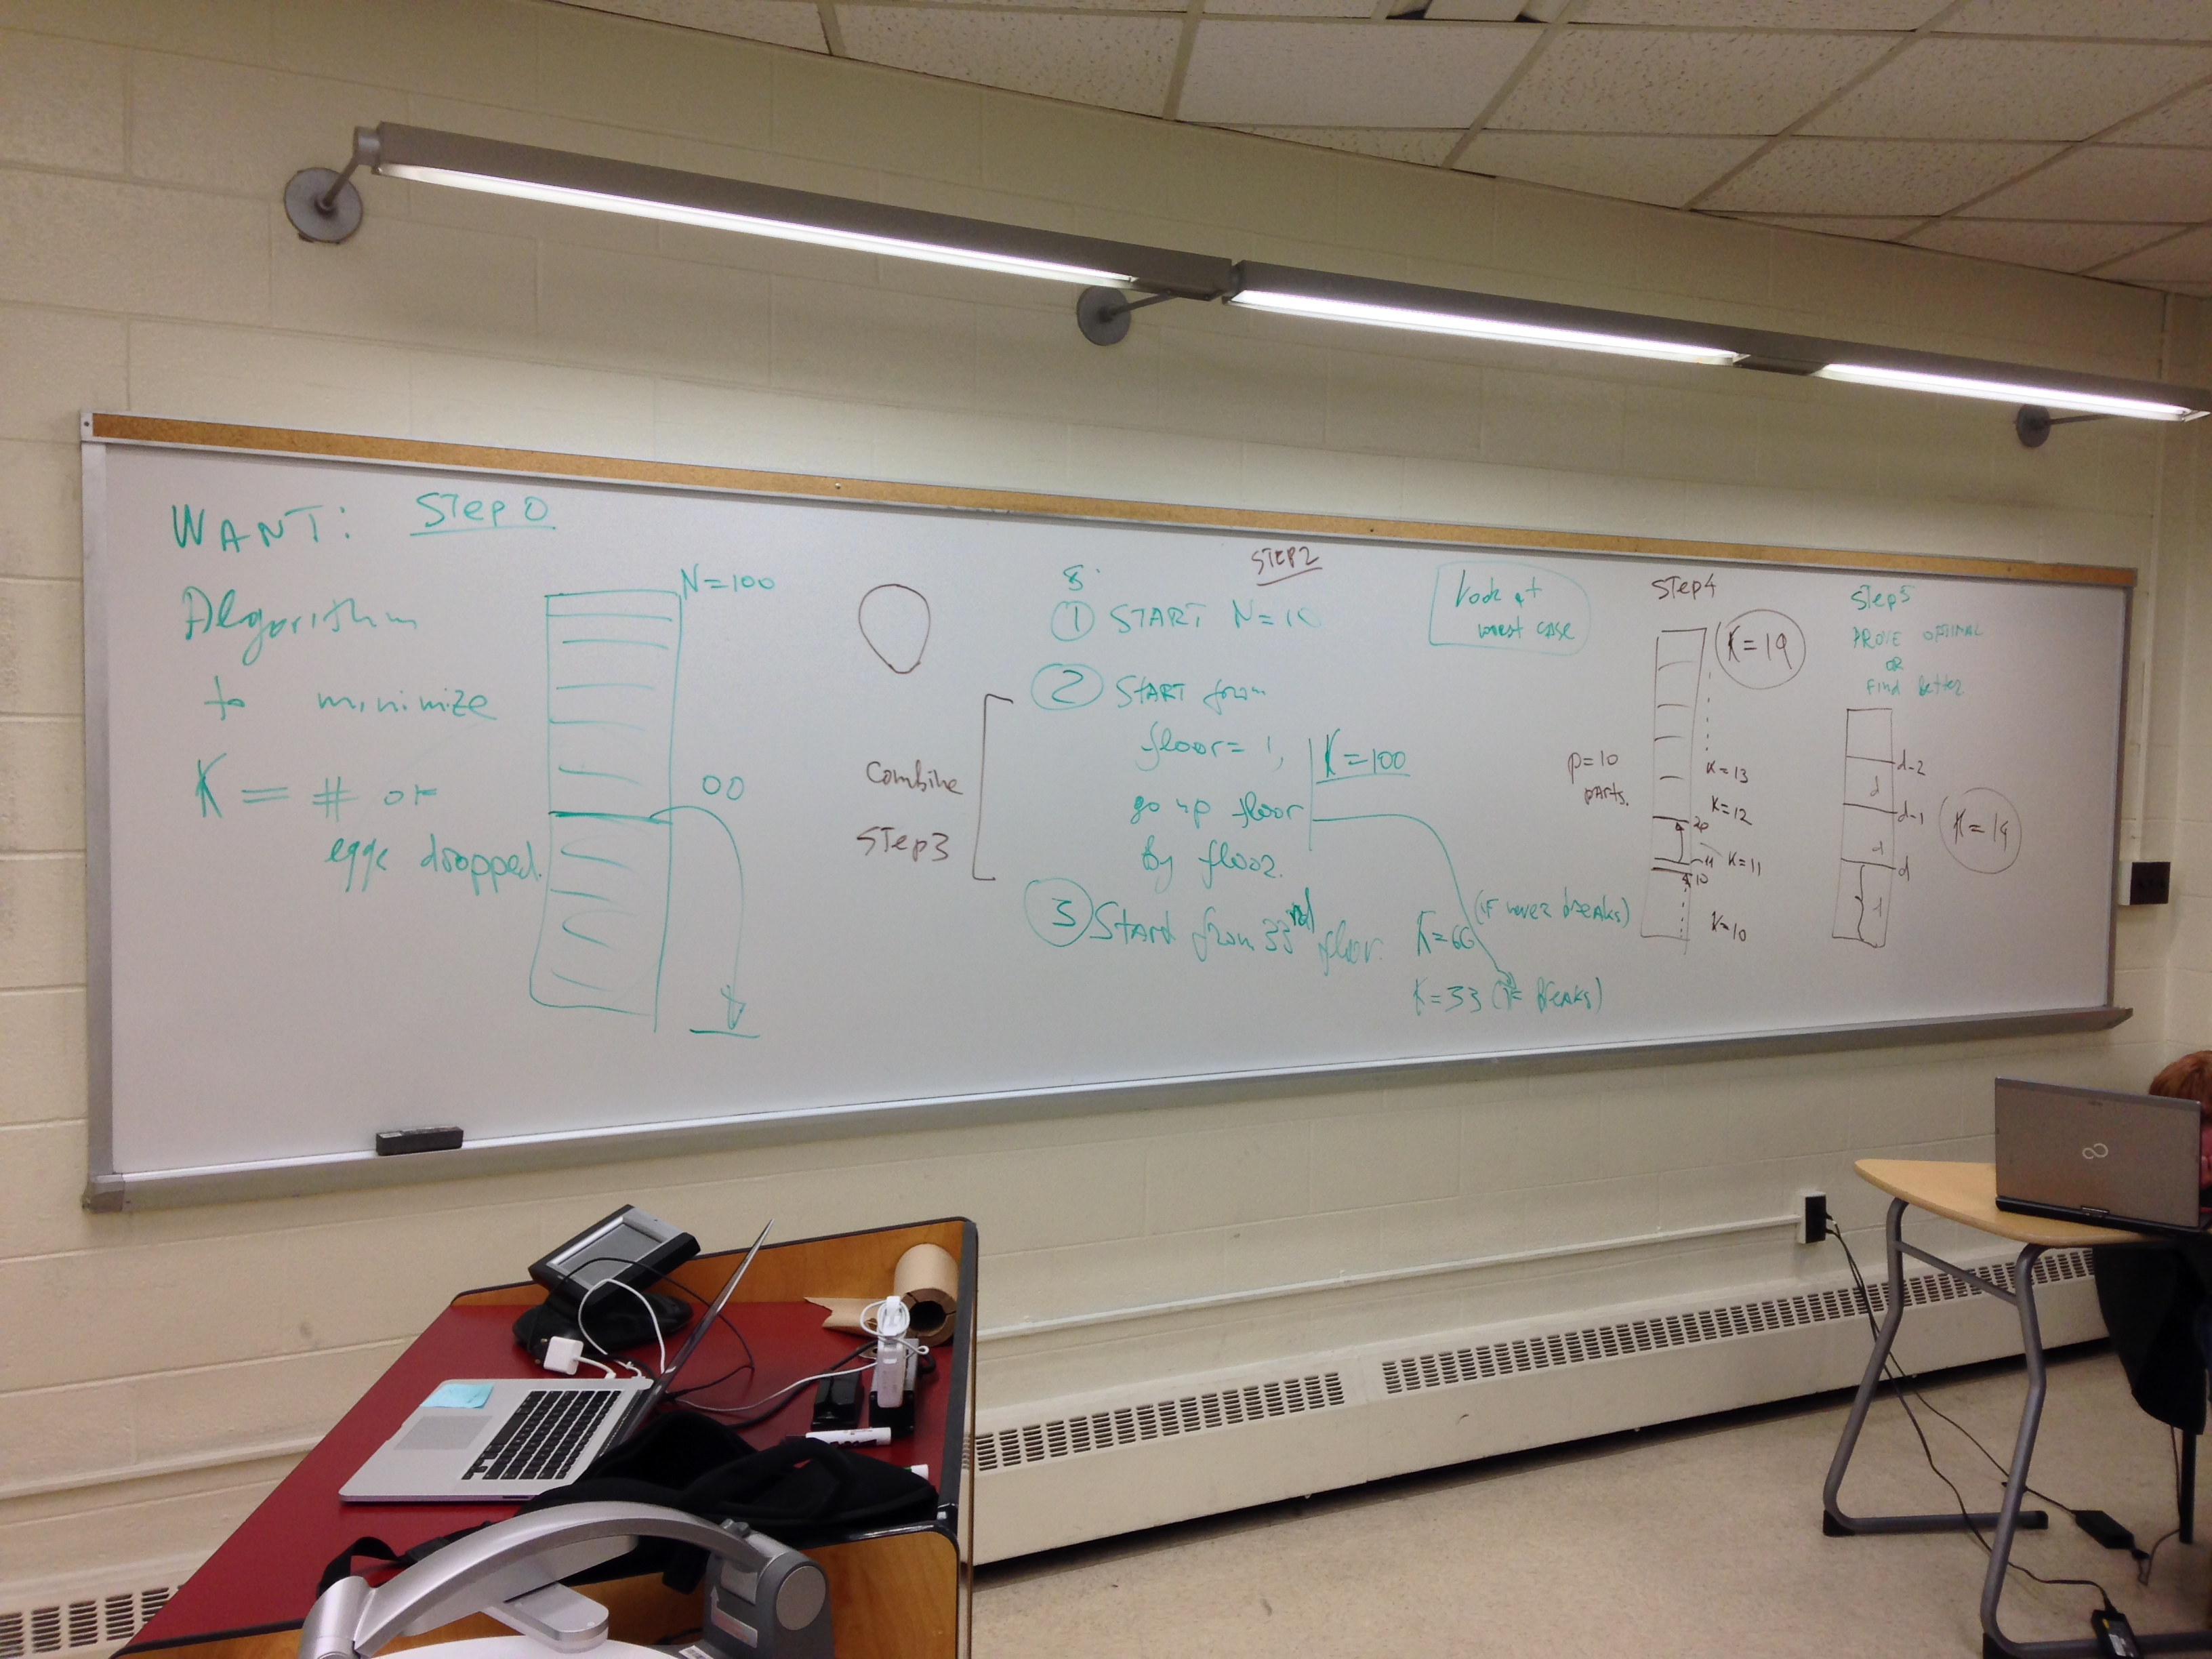 WANT: Step 0
Algorithm
to minimize
K = # OF
eggs dropped.
N=100
00
Combine
Step3
STEP2
8.
① START N=10
② START from
floor=1,
go up floor
by floor.
K=100
③ Start from 33rd floor.
K=66 (if never breaks)
K=33 (IF breaks)
Look at
worst case
Step4
K=19
p=10
parts.
K=13
K=12
20
K=11
11
10
K=10
Step5
PROVE OPTIMAL
OR
Find better
d-2
d
d-1
d
d
d
K=14